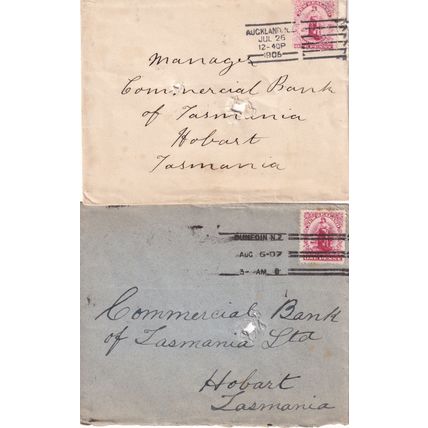 AUCKLAND.N.Z.
JUL 26
12-40P
1905
Manager
Commercial Bank
of Tasmania
Hobart
Tasmania
DUNEDIN N.Z
AUG 5-07
3- AM
Commercial Bank
of Tasmania Ltd
Hobart
Tasmania